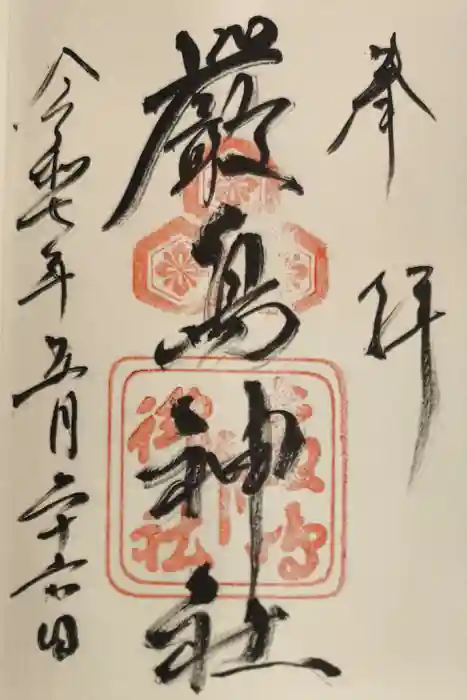 奉拝
嚴島神社
令和七年五月二十六日